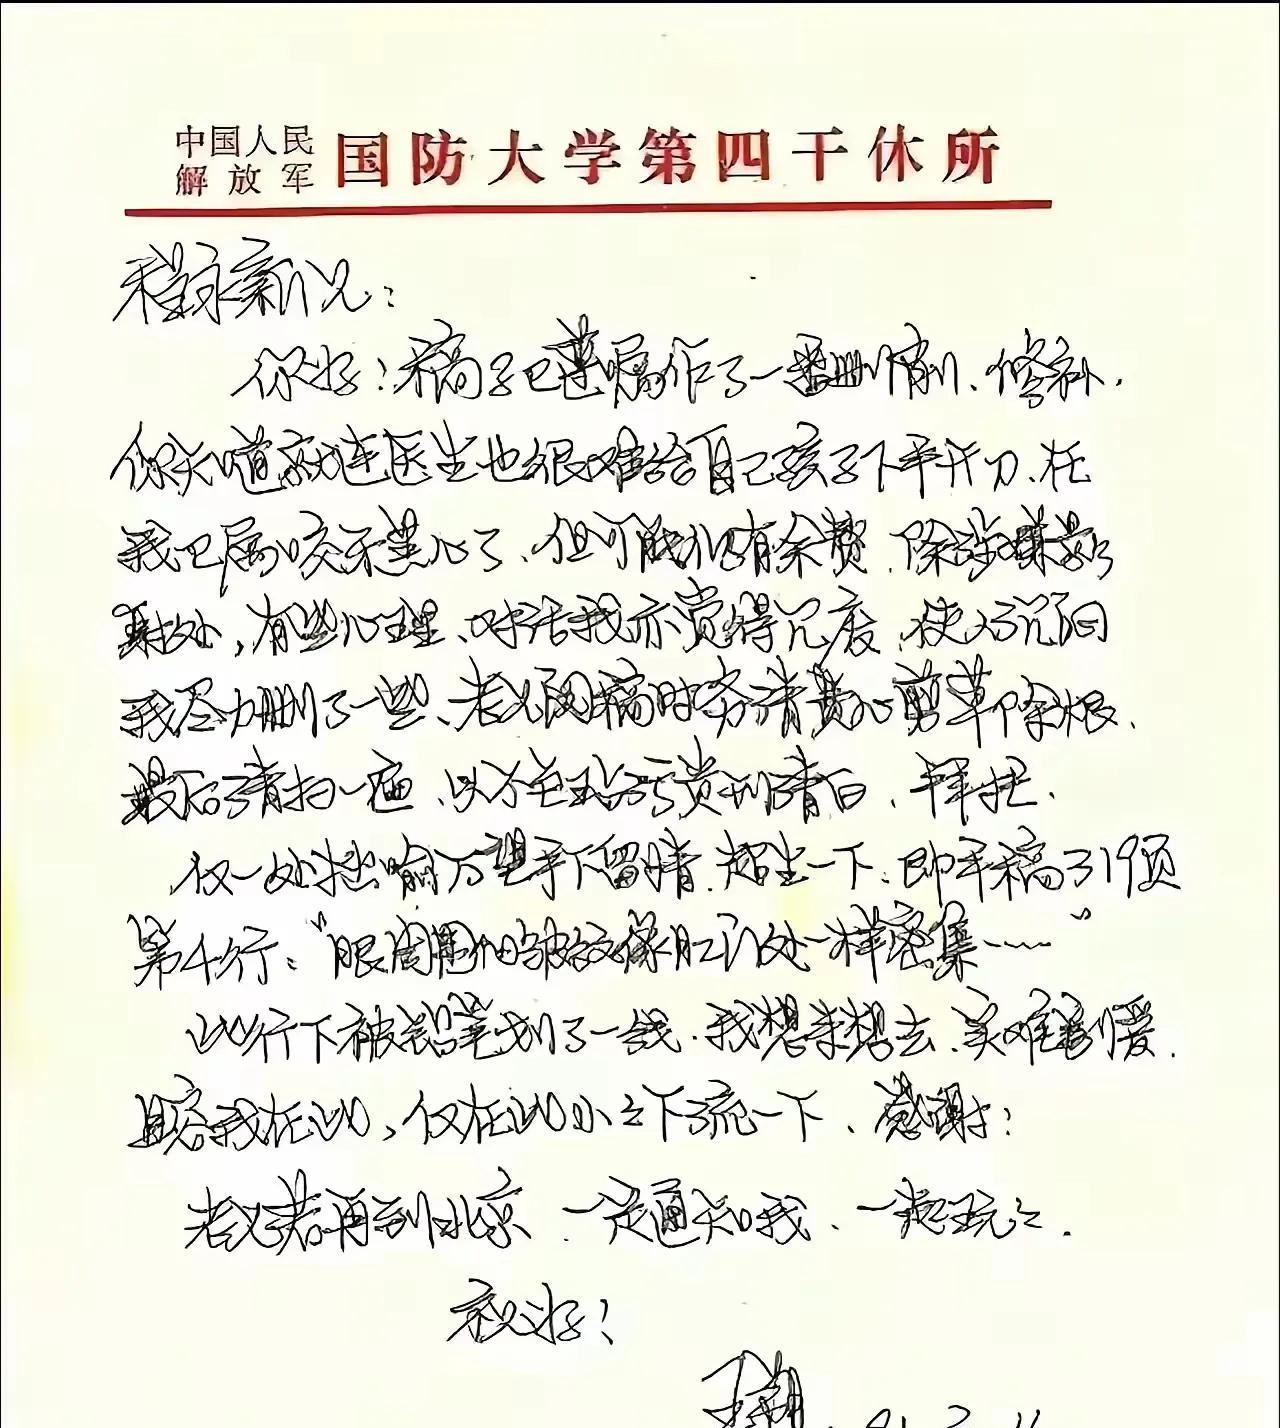 中国人民解放军 国防大学第四干休所
程永新兄：
你好！稿子已遵嘱作了一番删削、修补.
你知道就连医生也很难给自己孩子下手开刀、在
我已属咬牙黑心了、但可能仍有余赘.除涉嫌影
射处，有些心理、对话我亦觉得冗废.使人沉闷
我尽力删了一些、老兄阅稿时务请费心剪草除根.
最后清扫一遍、以 清白、拜托.
仅一处拙喻万望手下留情.超生一下、即手稿了19页
第4行：“眼周围细皱纹像肛门处一样密集……”
此行下被铅笔划了一线.我想来想去、实难割爱.
且容我在此，仅在此小小下流一下、感谢！
老兄若再到北京、一定通知我、一起玩玩.
祝好！
王朔